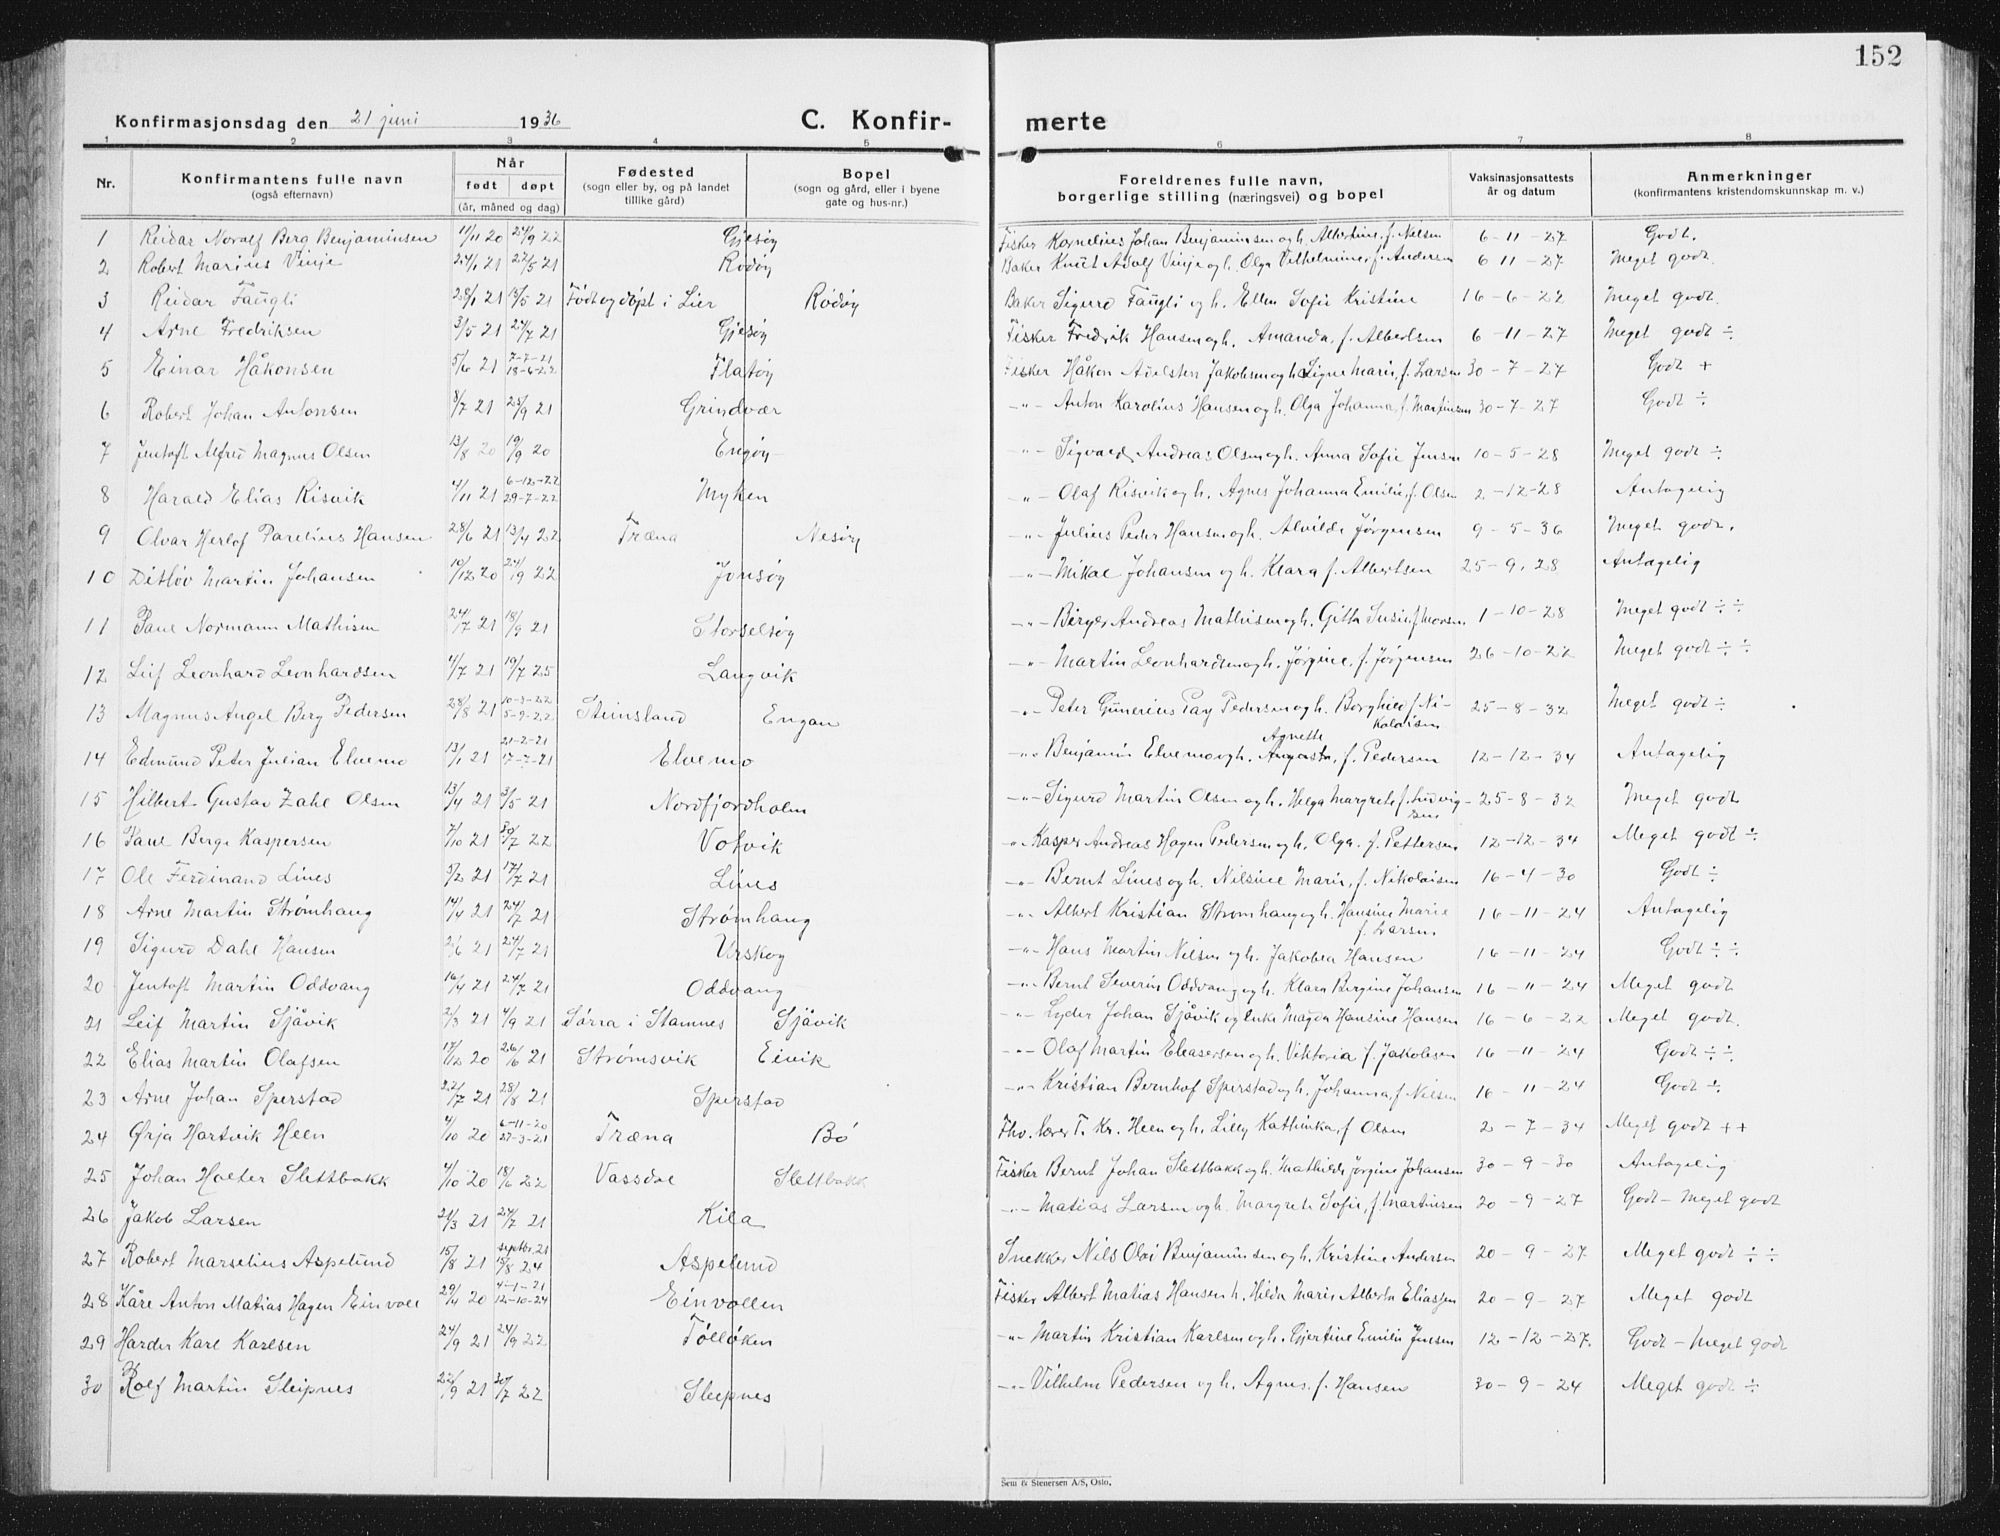 152
Konfirmasjonsdag den 21 juni 1936 C. Konfirmerte
1 2 3 4 5 6 7 8
Nr. Konfirmantens fulle navn (også efternavn) Når født døpt (år, måned og dag) Fødested (sogn eller by, og på landet tillike gård) Bopel (sogn og gård, eller i byene gate og hus-nr.) Foreldrenes fulle navn, borgerlige stilling (næringsvei) og bopel Vaksinasjonsattests år og datum Anmerkninger (konfirmantens kristendomskunnskap m. v.)
1 Reidar Noralf Berg Benjaminsen 11/11 20 24/9 22 Gjesøy Fisker Kornelius Johan Benjaminsen og h. Albertine, f. Nilsen 6-11-27 Godt.
2 Robert Marius Vinje 24/1 21 22/5 21 Rødøy Baker Knut Adolf Vinje og h. Olga Vilhelmine, f. Andersen 6 11-27 Meget godt.
3 Reidar Faugli 28/1 21 15/5 21 Født og døpt i Lier Rødøy Baker Sigurd Faugli og h. Ellen Sofie Kristine 16-6-22 Meget godt.
4 Arne Fredriksen 3/5 21 24/7 21 Gjesøy Fisker Fredrik Hansen og h. Amanda, f. Albertsen 6-11-27 Meget godt ÷
5 Einar Håkonsen 5/6 21 7-7-21 18-6-22 Flatøy Fisker Håkon Adelsten Jakobsen og h. Signe Marie, f. Larsen 30-7-27 Godt +
6 Robert Johan Antonsen 8/7 21 25/9 21 Grindvær -"- Anton Karolius Hansen og h. Olga Johanna, f. Martinsen 30-7-27 Godt ÷
7 Jentoft Alfred Magnus Olsen 13/8 20 19/9 20 Engøy -"- Sigvald Andreas Olsen og h. Anna Sofie Jensen 10-5-28 Meget godt ÷
8 Harald Elias Risvik 4/11 21 6-12-22 29-7-22 Myken -"- Olaf Risvik og h. Agnes Johanna Emilie, f. Olsen 2-12-28 Antagelig
9 Olvar Herlof Parelius Hansen 28/6 21 13/4 22 Træna Nesøy -"- Julius Peder Hansen og h. Alvilde Jørgensen 9-5-36 Meget godt.
10 Ditløv Martin Johansen 10/12 20 24/9 22 Jonsøy -"- Mikal Johansen og h. Klara f. Albertsen 25-9.28 Antagelig
11 Paul Normann Mathisen 24/7 21 18/9 21 Storselsøy -"- Birger Andreas Mathisen og h. Gitta Susine, f. Monsen 1-10-28 Meget godt ÷ ÷
12 Leif Leonhard Leonhardsen 4/7 21 19/7 25 Langvik -"- Martin Leonhardsen og h. Jørgine, f. Jørgensen 26-10-22 Meget godt ÷ ÷
13 Magnus Angel Berg Pedersen 28/8 21 10-3-22 5-9-22 Steinsland Engan -"- Peter Gunerius Pay Pedersen og h. Borghild f. Nikolaisen 25-8-32 Meget godt ÷
14 Edmund Peter Julian Elvemo 13/1 21 21-2-21 17-7-21 Elvemo -"- Benjamin Elvemo og h. Agnethe Augusta, f. Pedersen 12-12-34 Antagelig
15 Hilbert Gustav Zahl Olsen 13/4 21 3/5 21 Nordfjordholm -"- Sigurd Martin Olsen og h. Helga Margrete f. Ludvigsen 25-8-32 Meget godt
16 Paul Berge Kaspersen 7/10 21 30/7 22 Votvik -"- Kasper Andreas Hagen Pedersen og h. Olga. f. Pettersen 12-12-34 Meget godt ÷
17 Ole Ferdinand Lines 3/2 21 17/7 21 Lines -"- Bernt Lines og h. Nilsine Marie, f. Nikolaisen 16-4-30 Godt ÷
18 Arne Martin Strømhaug 14/4 21 24/7 21 Strømhaug -"- Albert Kristian Strømhaug og h. Hansine Marie f. Larsen 16-11-24 Antagelig
19 Sigurd Dahl Hansen 2/6 21 24/7 21 Urskog -"- Hans Martin Nilsen og h. Jakobea Hansen 16-11-24 Godt ÷ ÷
20 Jentoft Martin Oddvang 16/4 21 24/7 21 Oddvang -"- Bernt Severin Oddvang og h. Klara Birgine Johansen 16-11-24 Meget godt
21 Leif Martin Sjåvik 2/3 21 4/9 21 Sørra i Stamnes Sjåvik -"- Lyder Johan Sjåvik og enke Magda Hansine Hansen 16-6-22 Meget godt.
22 Elias Martin Olafsen 17/12 20 26/6 21 Strømsvik Eivik -"- Olaf Martin Eliasersen og h. Viktoria f. Jakobsen 16-11-24 Godt ÷ ÷
23 Arne Johan Sperstad 22/7 21 28/8 21 Sperstad -"- Kristian Bernhof Sperstad og h. Johanna, f. Nilsen 16-11-24 Godt ÷
24 Ørja Hartvik Heen 4/10 20 6-11-20 27-3-21 Træna Bø Fhv. lærer T. Kr. Heen og h. Lilly Kathinka, f. Olsen 2-7-34 Meget godt ++
25 Johan Holter Slettbakk 4/10 20 18/6 22 Vassdal Slettbakk Fisker Bernt Johan Slettbakk og h. Mathilde Jørgine Johansen 30-9-30 Antagelig
26 Jakob Larsen 21/3 21 24/7 21 Kila -"- Matias Larsen og h. Margrete Sofie, f. Martinsen 20-9-27 Godt - Meget godt
27 Robert Marselius Aspelund 15/8 21 septbr. 21 15/8 24 Aspelund Snekker Nils Olai Benjaminsen og h. Kristine Andersen 20-9-27 Meget godt ÷ ÷
28 Kåre Anton Matias Hagen Einvoll 29/4 20 4-1-21 12-10-24 Einvollen Fisker Albert Matias Hansen h. Hilda Marie Alberta Eliassen 20-9-27 Meget godt
29 Harder Karl Karlsen 24/9 21 24/9 22 Tølløken -"- Martin Kristian Karlsen og h. Gjertine Emilie Jensen 12-12-27. Godt - Meget godt
30 Rolf Martin Sleipnes 22/9 21 30/7 22 Sleipnes -"- Vilhelm Pedersen og h. Agnes. f. Hansen 30-9-24 Meget godt ÷
Sem & Stenersen A/S, Oslo.